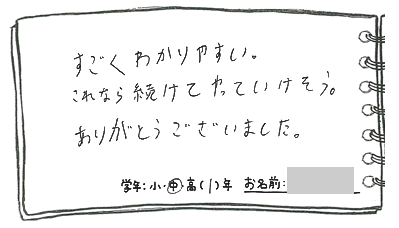 すごくわかりやすい。
これなら続けてやっていけそう。
ありがとうございました。
学年:小・中・高(1)年 お名前: